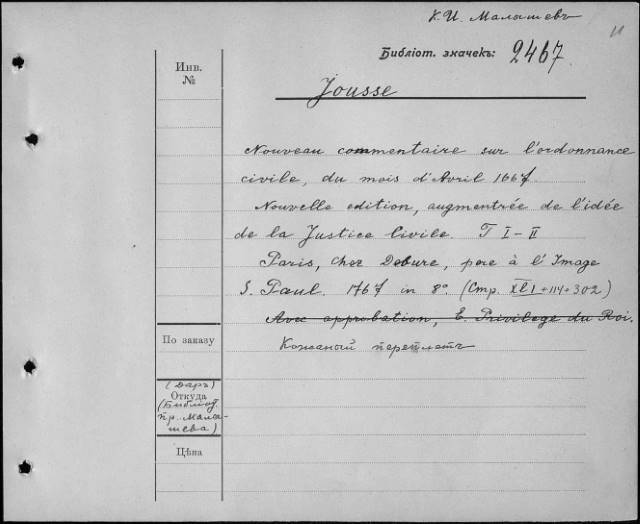 К. И. Малышевъ
Библіот. значекъ: 2467.
Инв.
№
Jousse
Nouveau commentaire sur l'ordonnance
civile, du mois d'Avril 1667.
Nouvelle edition, augmentrée de l'idée
de la Justice Civile. T I-II
Paris, Chez Debure, pere à l'Image
S. Paul. 1767 in 8°. (Стр. XLI+114+302)
Avec approbation, E. Privilege du Roi.
По заказу
Кожаный переплетъ
(Даръ)
Откуда
(Библіот.
пр. Малы-
шева)
Цѣна